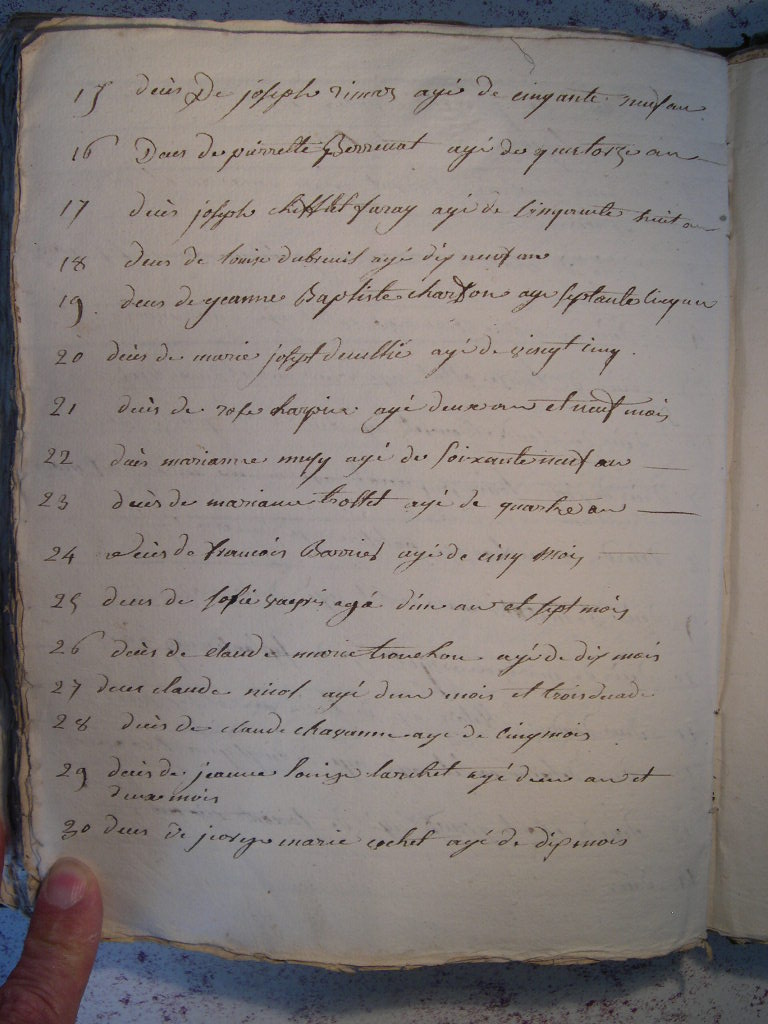 15 deces De joseph agé de cinqante neuf an
16 Deces de pierrette agé de quatorze an
17 deces joseph agé de cinquante huit an
18 deces de louise dubreuil agé dix neuf an
19 deces de jeanne Baptiste age septante cinq an
20 deces de marie joseph agé de vingt cinq
21 deces de rose agé deux an et neuf mois
22 deces marianne agé de soixante neuf an
23 deces de marianne agé de quatre an
24 deces de francois agé de cinq mois
25 deces de sofie agé d'un an et sept mois
26 deces de claude marie trouchon agé de dix mois
27 deces claude nicod agé deux mois et trois decade
28 deces de claude chavanne age de cinq mois
29 deces de jeanne louise larchet agé deux an et
deux mois
30 deces de marie cochet agé de dix mois